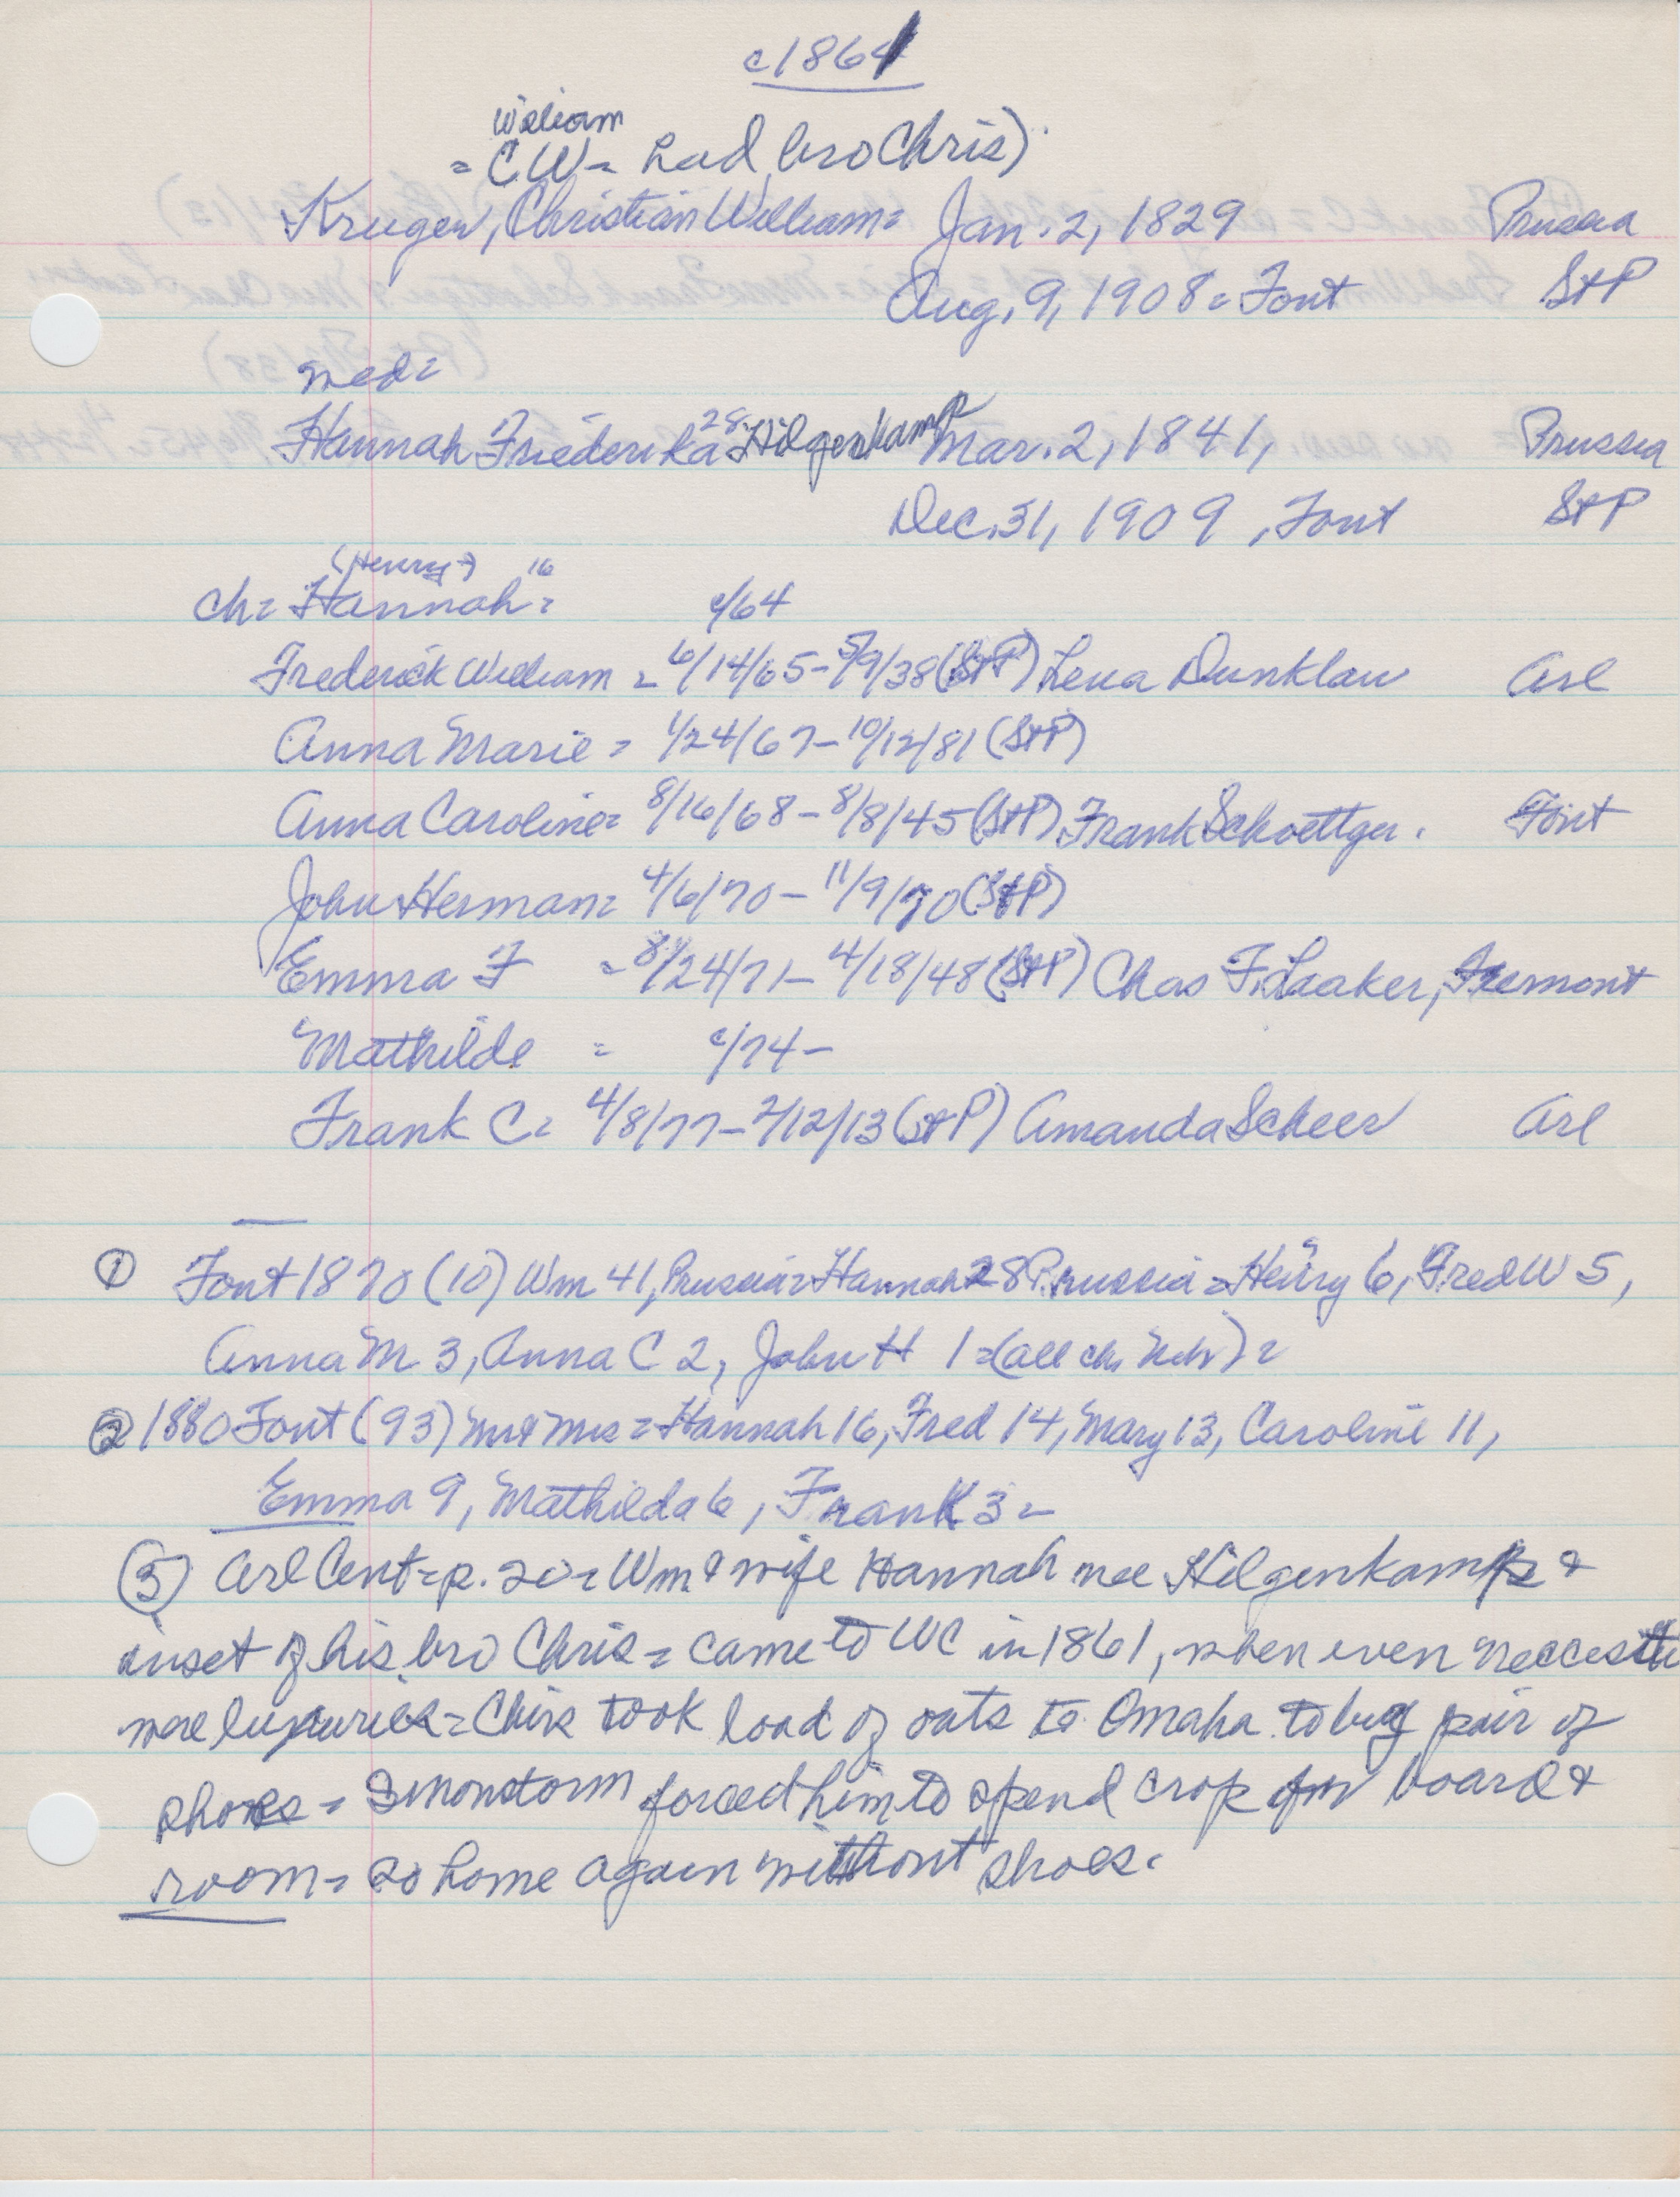 c1861
William
= CW = had bro Chris)
Kruger, Christian William = Jan. 2, 1829 Prussia
Aug. 9, 1908 = Font St P
med =
Hannah Friederika 28 Hilgenkamp Mar. 2, 1841, Prussia
Dec. 31, 1909, Font St P
(Henry?) 16
ch = Hannah = c/64
Frederick William = 6/14/65 - 5/9/38 (St P) Lena Dunklau Arl
Anna Marie = 1/24/67 - 10/12/81 (St P)
Anna Caroline = 8/16/68 - 8/8/45 (St P) Frank Schoettger. Font
John Herman = 4/6/70 - 11/9/70 (St P)
Emma F = 8/24/71 - 4/18/48 (St P) Chas F. Laaker, Fremont
Mathilde = c/74 -
Frank C = 4/8/77 - 2/12/13 (St P) Amanda Scheer Arl
① Font 1870 (10) Wm 41, Prussia = Hannah 28 Prussia = Henry 6, Fred W 5,
Anna M 3, Anna C 2, John H 1 = (all ch. Neb) =
② 1880 Font (93) Mr & Mrs = Hannah 16, Fred 14, Mary 13, Caroline 11,
Emma 9, Mathilda 6, Frank 3 =
③ Arl Cent = p. 20 = Wm & wife Hannah nee Hilgenkamp &
inset of his bro Chris = came to WC in 1861, when even
were luxuries = Chris took load of oats to Omaha to buy pair of
shoes = Snowstorm forced him to spend crop for board &
room = so home again without shoes.